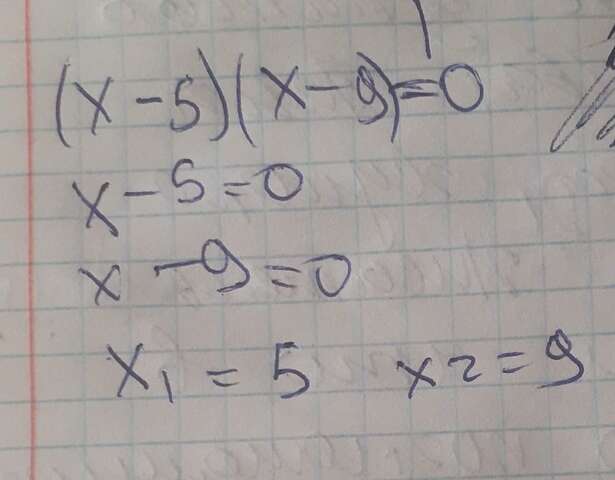 (x - 5)(x - 9) = 0
x - 5 = 0
x - 9 = 0
x₁ = 5 x2 = 9